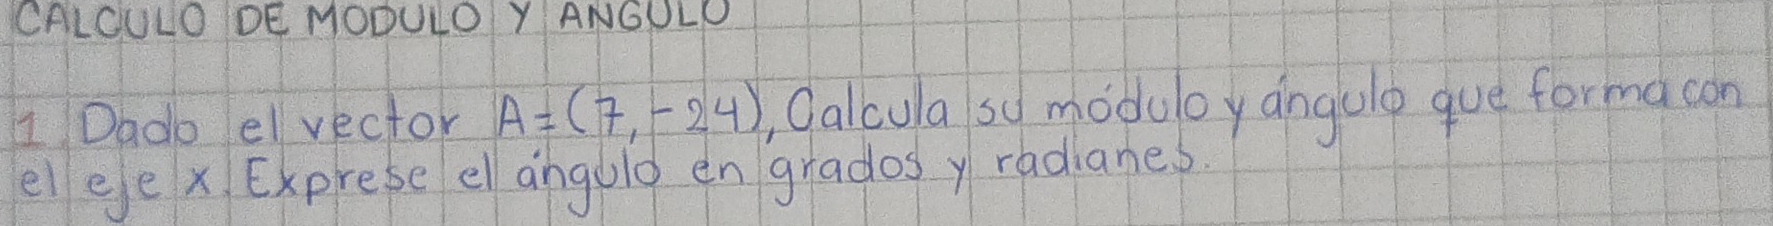 CALCULO DE MODULO Y ANGULO
1. Dado el vector A=(7,-24), Calcula su módulo y ángulo que forma con
el eje x. Exprese el ángulo en grados y radianes.